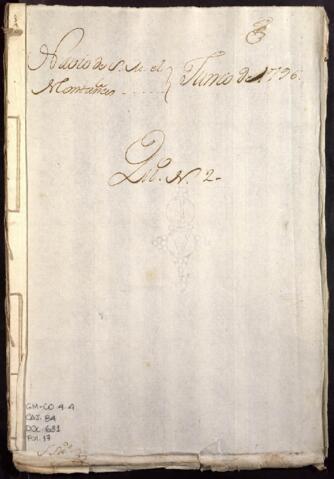 Navio de S. M. el } Junio de 1796.
Montañes - - - - -
Qu. N. 2-
GM-CO 4.4
CAJ. 84
DOC. 631
FOL. 17